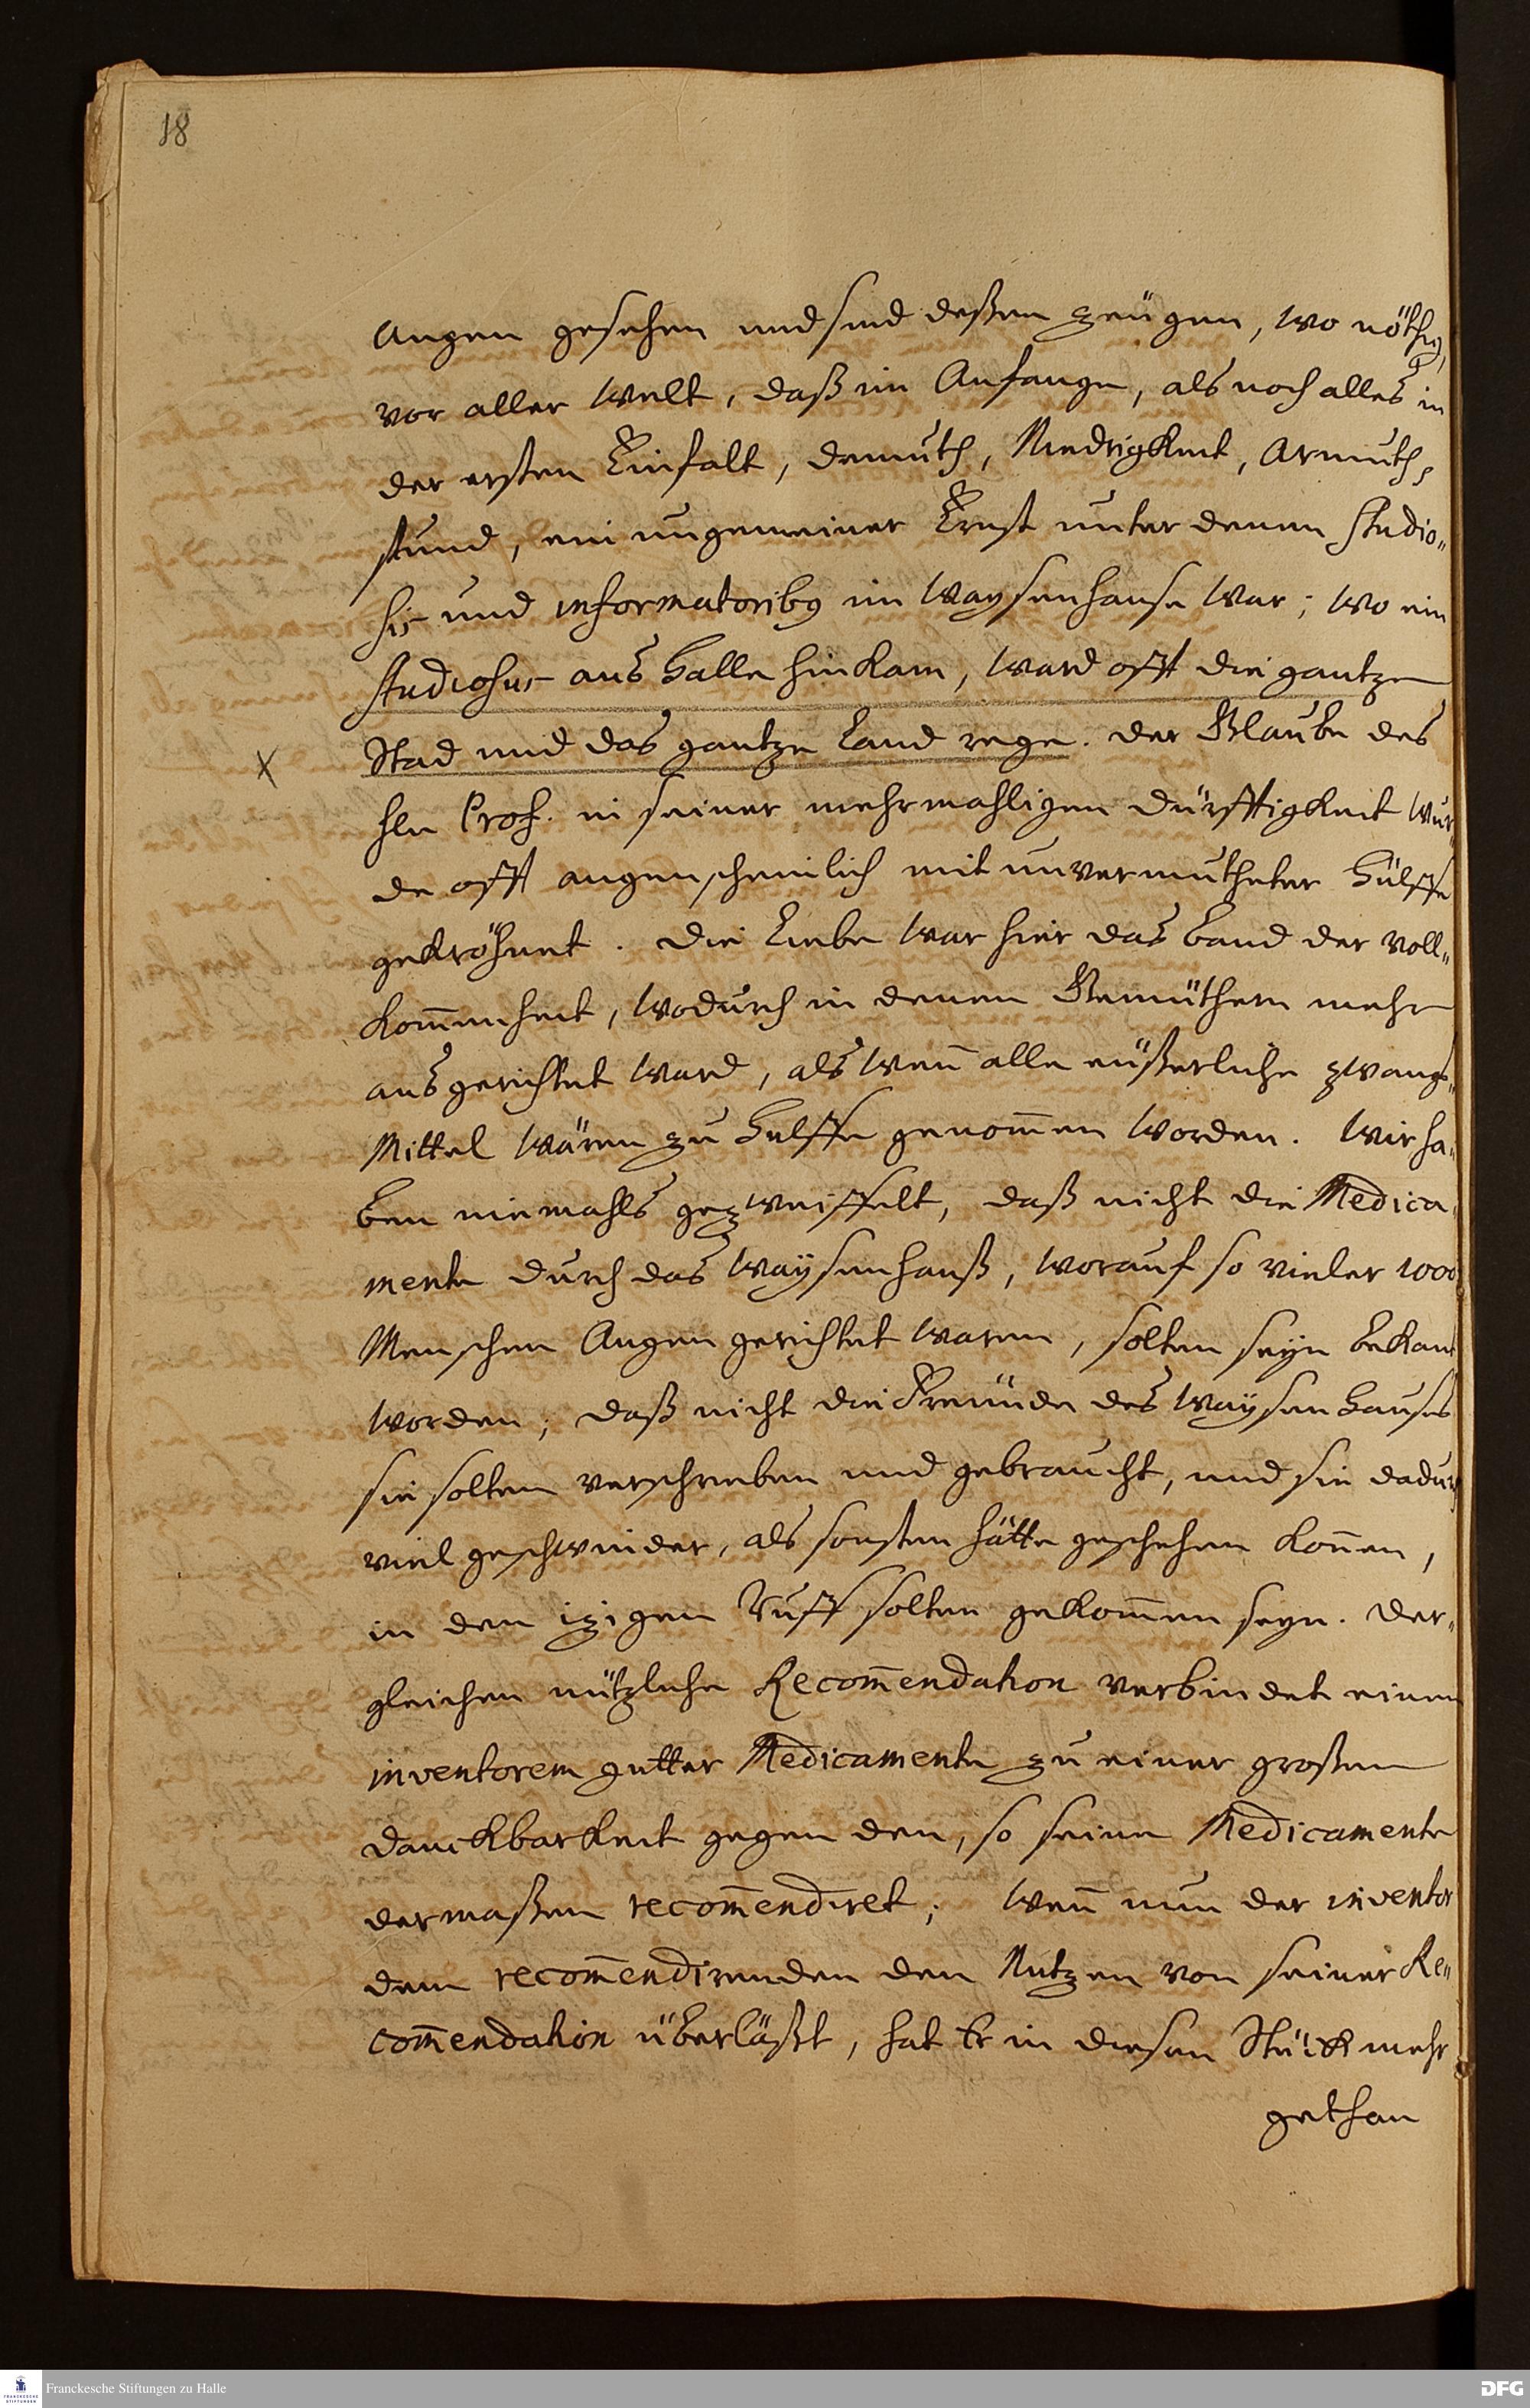 18
Augen gesehen und sind deßen zeügen, wo nöthig,
vor aller Welt, daß im Anfange, als noch alles in
der ersten Einfalt, demuth, Niedrigkeit, Armuth,
stund, ein ungemeiner Ernst unter denen Studio-
sis und informatoribq im Waysenhause war; wo ein
studiosus aus Halle hinkam, ward offt die gantze
X
Stad und das gantze Land rege. der Glaube des
Hln Prof. in seiner mehrmahligen dürfftigkeit wur-
de offt augenscheinlich mit unvermutheter Hülffe
gekröhnet. die Liebe war hier das band der voll-
kom̄enheit, wodurch in denen Gemüthern mehr
ausgerichtet ward, als wen̄ alle eüßerliche zwangs-
Mittel wären zu Hulffe genom̄en worden. Wir ha-
ben niemahls gezweiffelt, daß nicht die Medica-
mente durch das Waysenhauß, worauf so vieler 1000
Menschen Augen gerichtet waren, solten seyn bekant
worden; daß nicht die Freunde des Waysen Hauses
sie solten verschrieben und gebraucht, und sie dadurch
viel geschwinder, als sonsten hätte geschehen kön̄en,
in den izigen Ruff solten gekom̄en seyn. der-
gleichen nützliche Recom̄endation verbindet einen
inventorem gutter Medicamente zu einer großen
danckbarkeit gegen den, so seine Medicamente
dermaßen recom̄endiret; Wen̄ nun der inventor
dem recom̄endirenden den Nutzen von seiner Re-
com̄endation überläßt, hat Er in diesen Stück mehr
gethan
Franckesche Stiftungen zu Halle
FRANCKESCHE
STIFTUNGEN
DFG